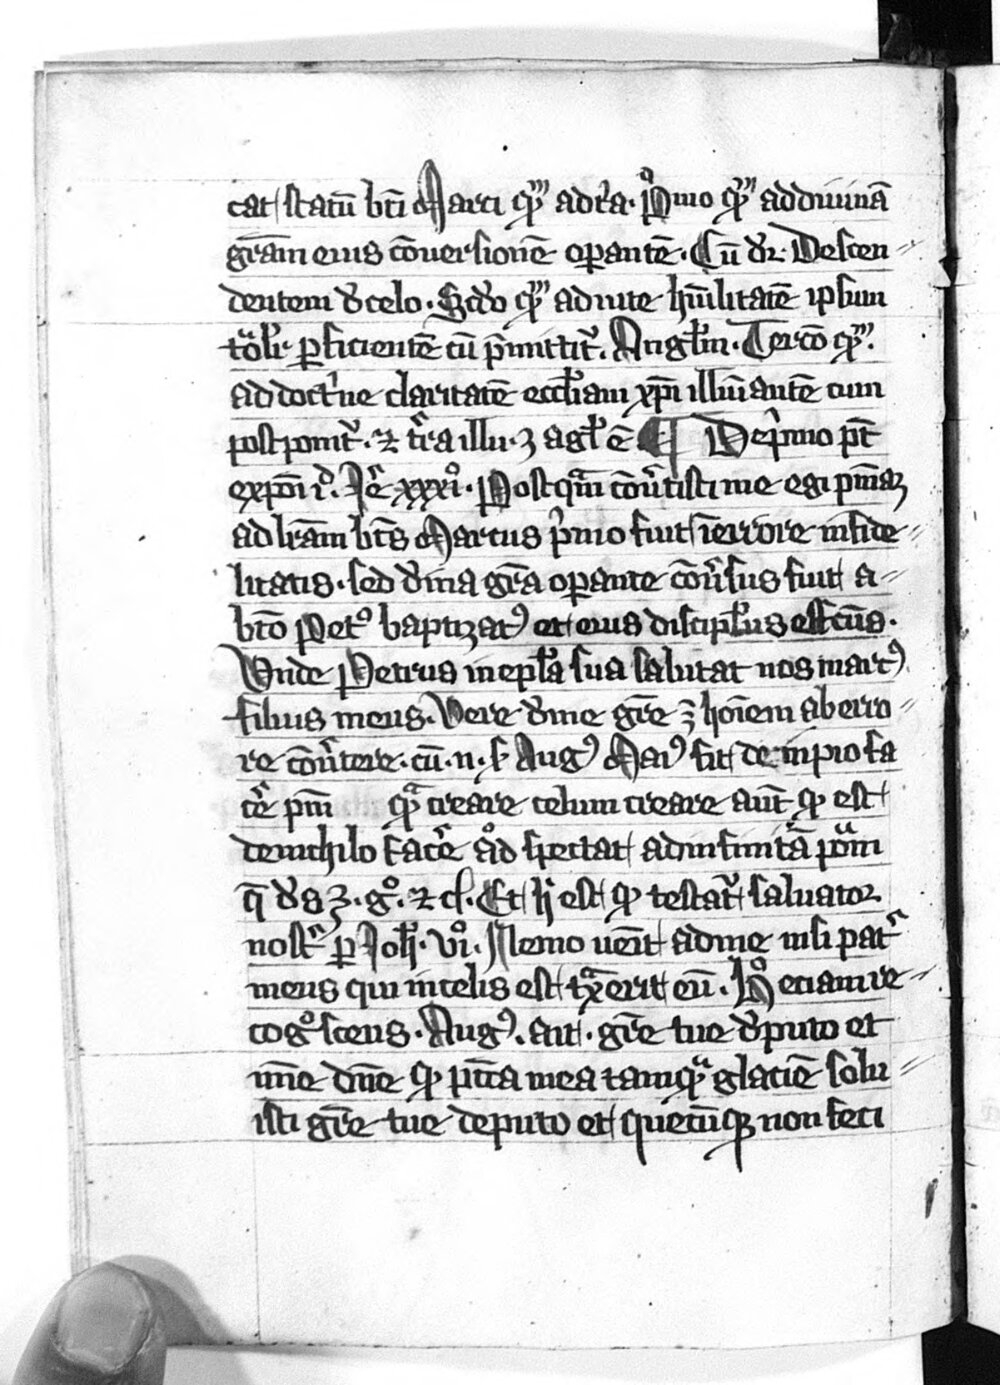 cat statū bti Marci qm ad tria. Primo qm ad diuinā
grām eius cōuersionē operantē. Cū dr. Descen
dentem d celo. Scdo qm ad uite hūilitatē ipsum
ꝑficientē cū p̄mittit. Anglm. Tercō qm
ad doctrine claritatē eccliam xp̄i illuīantē cum
postponit. ⁊ tra illu. ē De primo pt
expōi Jere xxxiº. Postqm cōuertisti me egi pniam
ad lram bts Marcus primo fuit ī errore infide
litatis. sed diuina gra operante cōuersus fuit a
bto Petº baptizatꝰ et eius discipulus effectus.
Unde Petrus in epla sua salutat uos marcꝰ
filius meus. Uere diuine gre ē hoīem ab erro
re cōuertere. cū. n. s Augꝰ Maiꝰ sit de impio fa
cere pium qm creare celum creare aut qd est
de nichilo facere ad spectat ad infinitā potentiam
q̄ ds ē. gº. ⁊ cͥ. Et hͥ est qd testatur saluator
noster ꝑ Joh. viº. Nemo uenit ad me nisi pater
meus qui in celis est traxerit eū. Hº eciam re
cogºscens. Augꝰ. ait. gre tue deputo et
mīe dn̄e qd pcc̄a mea tamqm glaciē solu
isti gre tue deputo et quecūqꝫ non feci